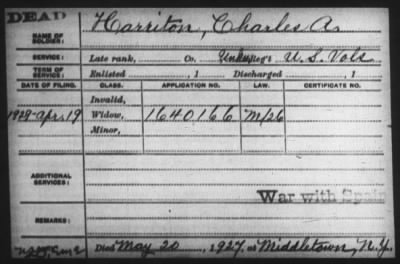 DEAD
NAME OF SOLDIER: Harriton, Charles A.
SERVICE: Late rank, Co. Reg't U.S. Vols
TERM OF SERVICE: Enlisted , 1 Discharged , 1
DATE OF FILING. CLASS. APPLICATION NO. LAW. CERTIFICATE NO.
Invalid,
1929-Apr. 19 Widow, 1640166 M/26
Minor,
ADDITIONAL SERVICES:
War with Spain
REMARKS:
Died May 20, 1927, at Middletown, N.Y.